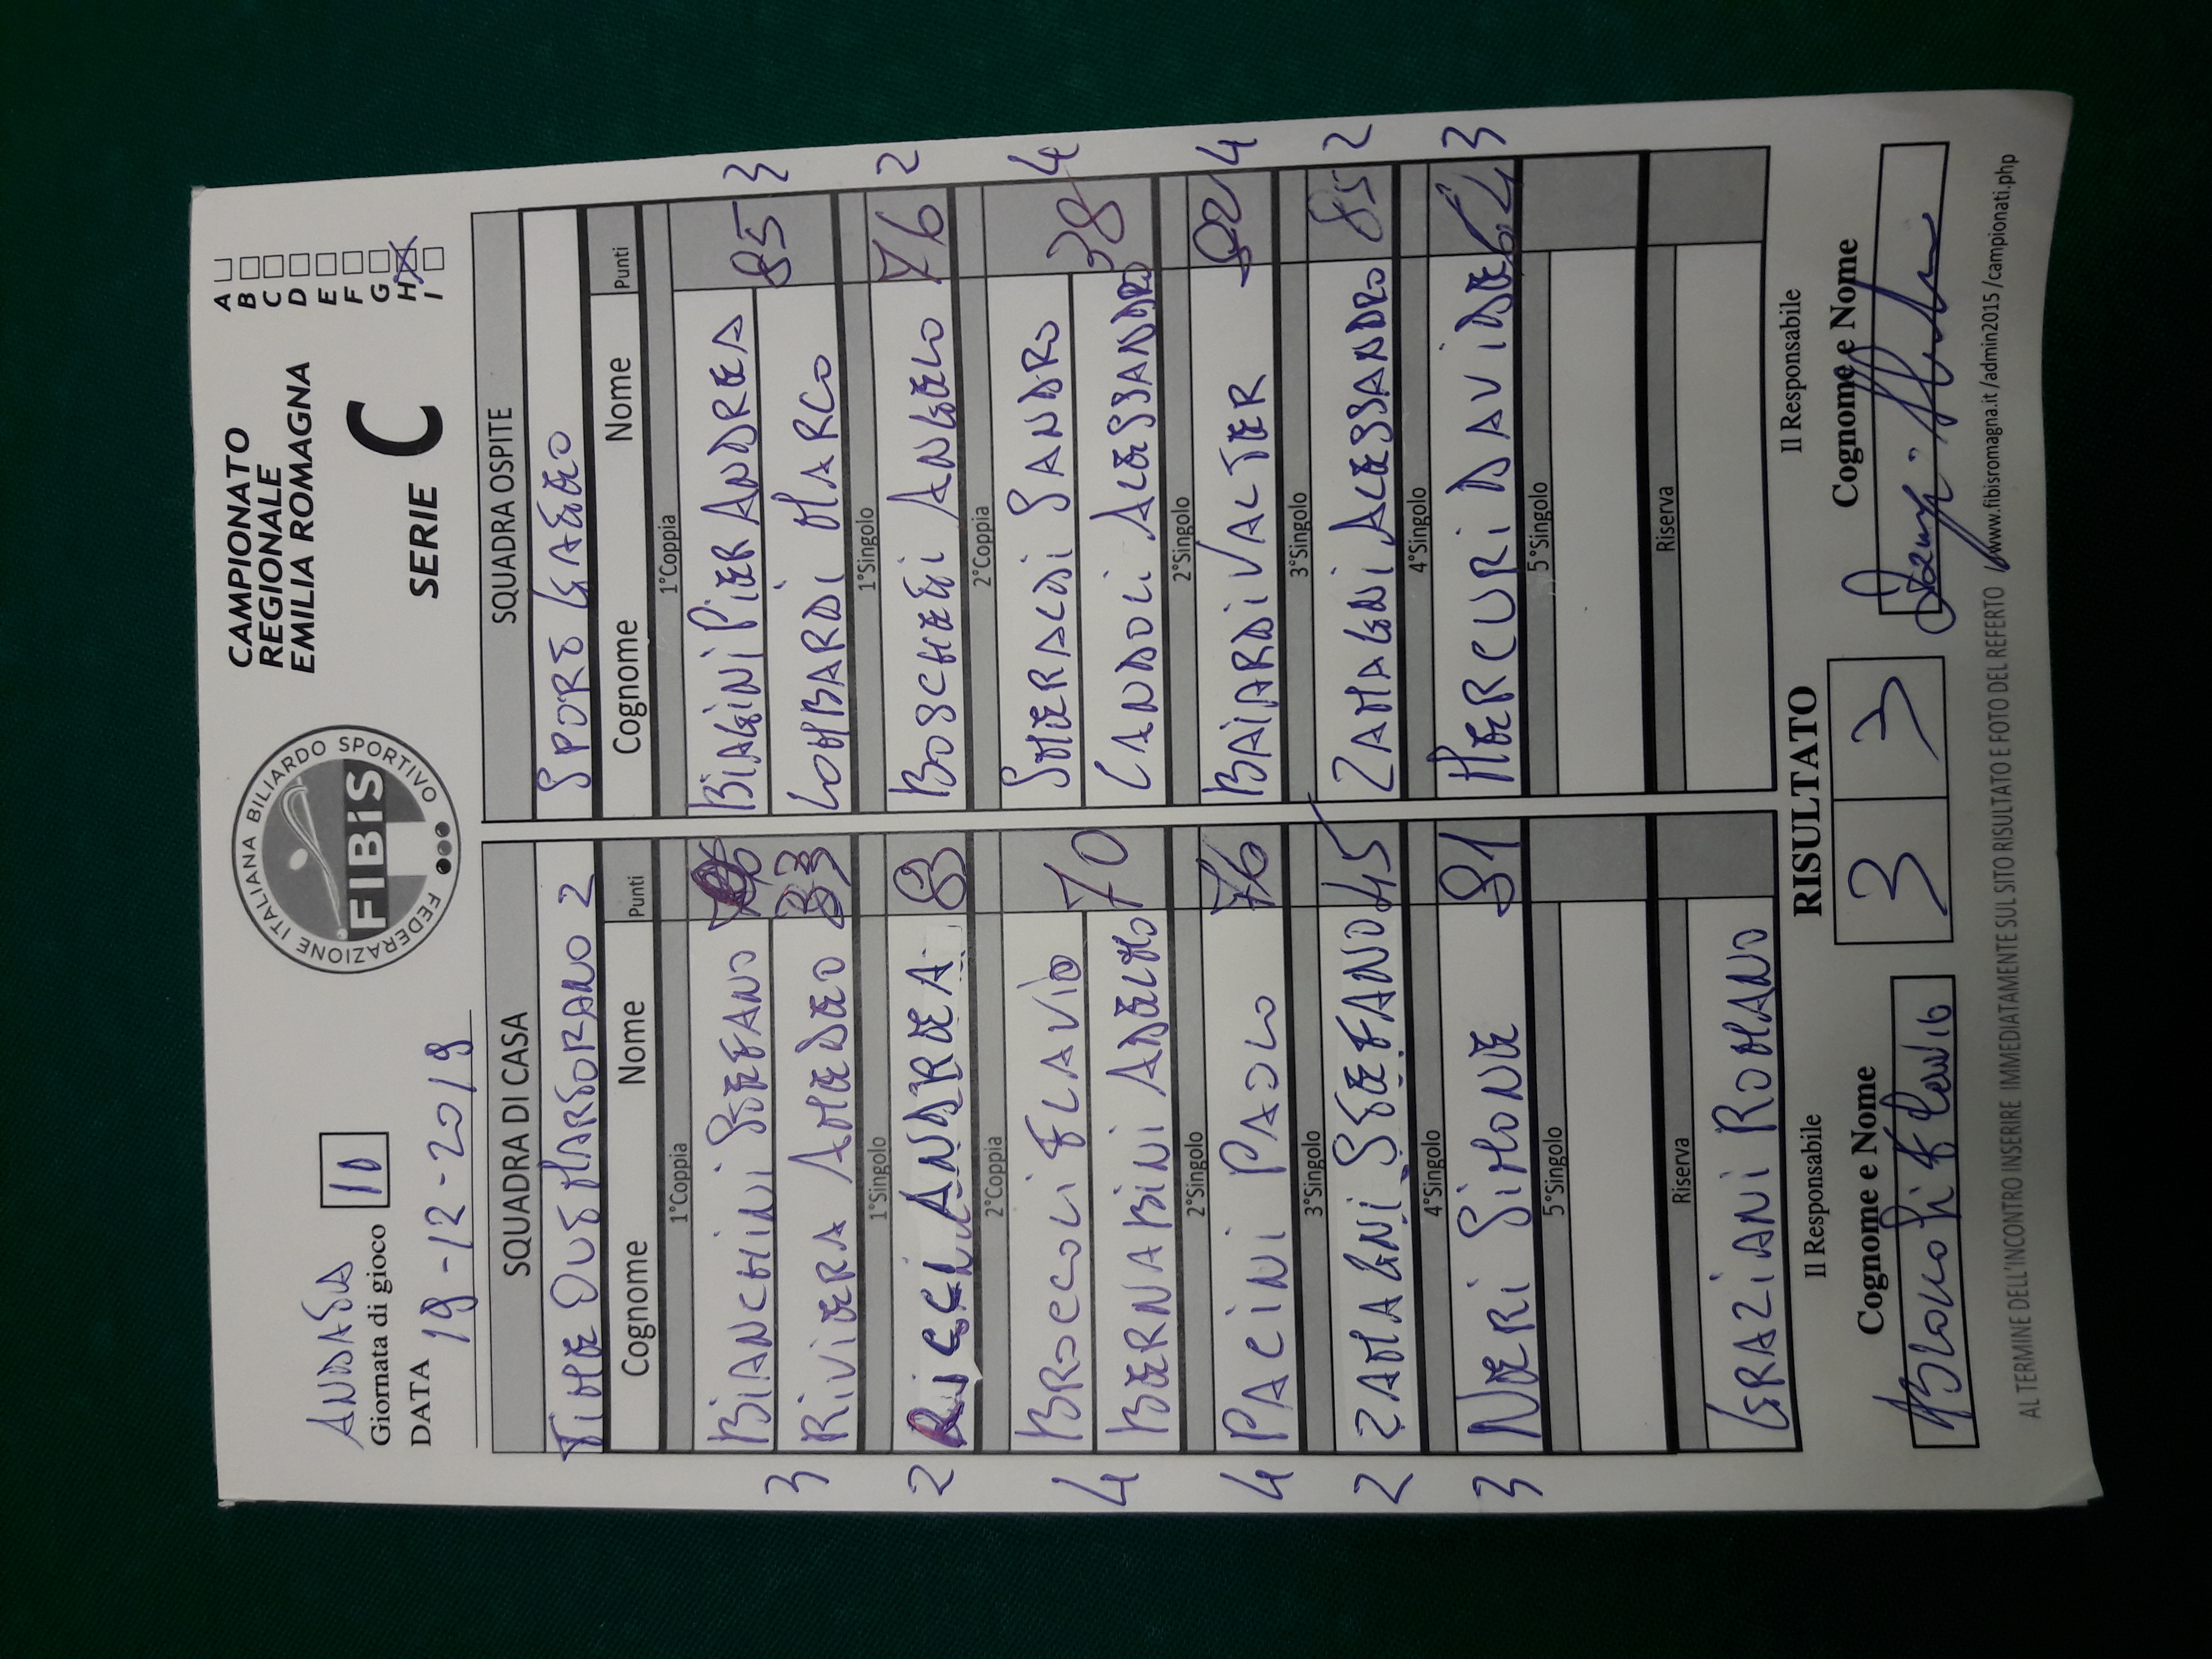 ANDATA
Giornata di gioco 10
DATA 19-12-2019
FEDERAZIONE ITALIANA BILIARDO SPORTIVO
FIBiS
CAMPIONATO
REGIONALE
EMILIA ROMAGNA
SERIE C
A
B
C
D
E
F
G
H
I
SQUADRA DI CASA
TIME OUT MARTORANO 2
Cognome Nome Punti
1°Coppia
BIANCHINI STEFANO
3 RIVIERA AMEDEO 33
1°Singolo
2 RICCI ANDREA
2°Coppia
BROCCOLI FLAVIO
4 BERNABINI ADELMO 70
2°Singolo
4 PACINI PAOLO 76
3°Singolo
2 ZAMAGNI STEFANO 45
4°Singolo
3 NERI SIMONE 81
5°Singolo
Riserva
GRAZIANI ROMANO
SQUADRA OSPITE
SPORT GATTEO
Cognome Nome Punti
1°Coppia
BIAGINI PIER ANDREA
LOMBARDI MARCO 85 3
1°Singolo
BOSCHETTI ANGELO 76 2
2°Coppia
SMERALDI SANDRO
CANDOLI ALESSANDRO 38 4
2°Singolo
BAIARDI VALTER 4
3°Singolo
ZAMAGNI ALESSANDRO 85 2
4°Singolo
MERCURI DAVIDE 62 3
5°Singolo
Riserva
Il Responsabile
Cognome e Nome
RISULTATO
3 3
Il Responsabile
Cognome e Nome
AL TERMINE DELL'INCONTRO INSERIRE IMMEDIATAMENTE SUL SITO RISULTATO E FOTO DEL REFERTO www.fibisromagna.it/admin2015/campionati.php